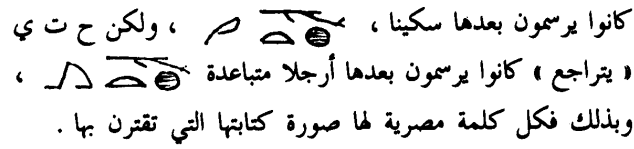 كانوا يرسمون بعدها سكينا ، ، ولكن ح ت ي
« يتراجع » كانوا يرسمون بعدها أرجلا متباعدة ،
وبذلك فكل كلمة مصرية لها صورة كتابتها التي تقترن بها .